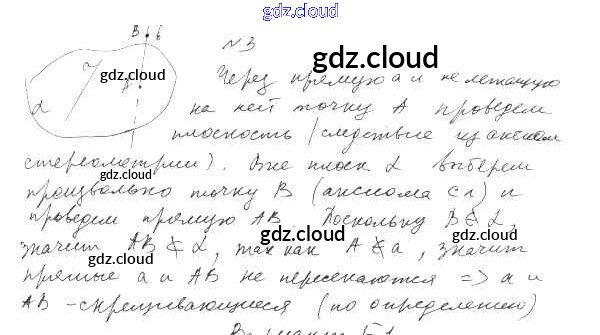 gdz.cloud
B b
N 3
gdz.cloud
a gdz.cloud A
α
Через прямую a и не лежащую
на ней точку A проведем
плоскость (следствие из аксиом
стереометрии). Вне плоск α выберем
gdz.cloud
произвольно точку B (аксиома C1) и
проведем прямую AB Поскольку B ∉ α,
gdz.cloud
значит AB ⊄ α, так как A ∉ a, значит
прямые a и AB не пересекаются => a и
gdz.cloud
AB - скрещивающиеся (по определению)